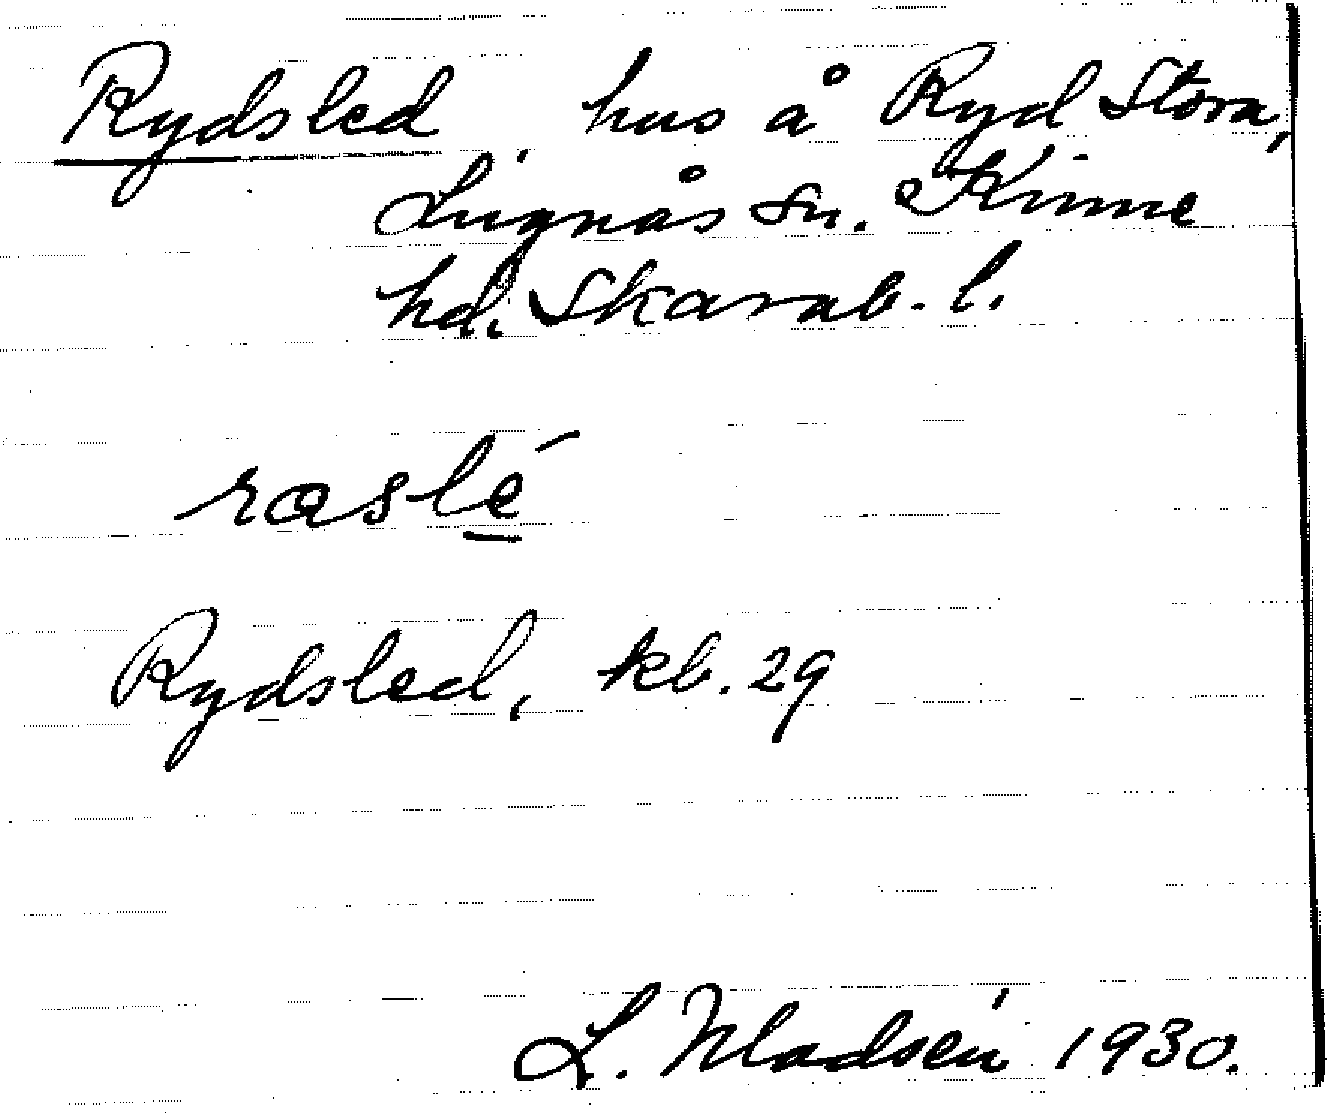 Rydsled, hus å Ryd Stora,
Lugnås sn. Kinne
hd. Skarab. l.
røslé
Rydsled, kb. 29
L. Madsén 1930.